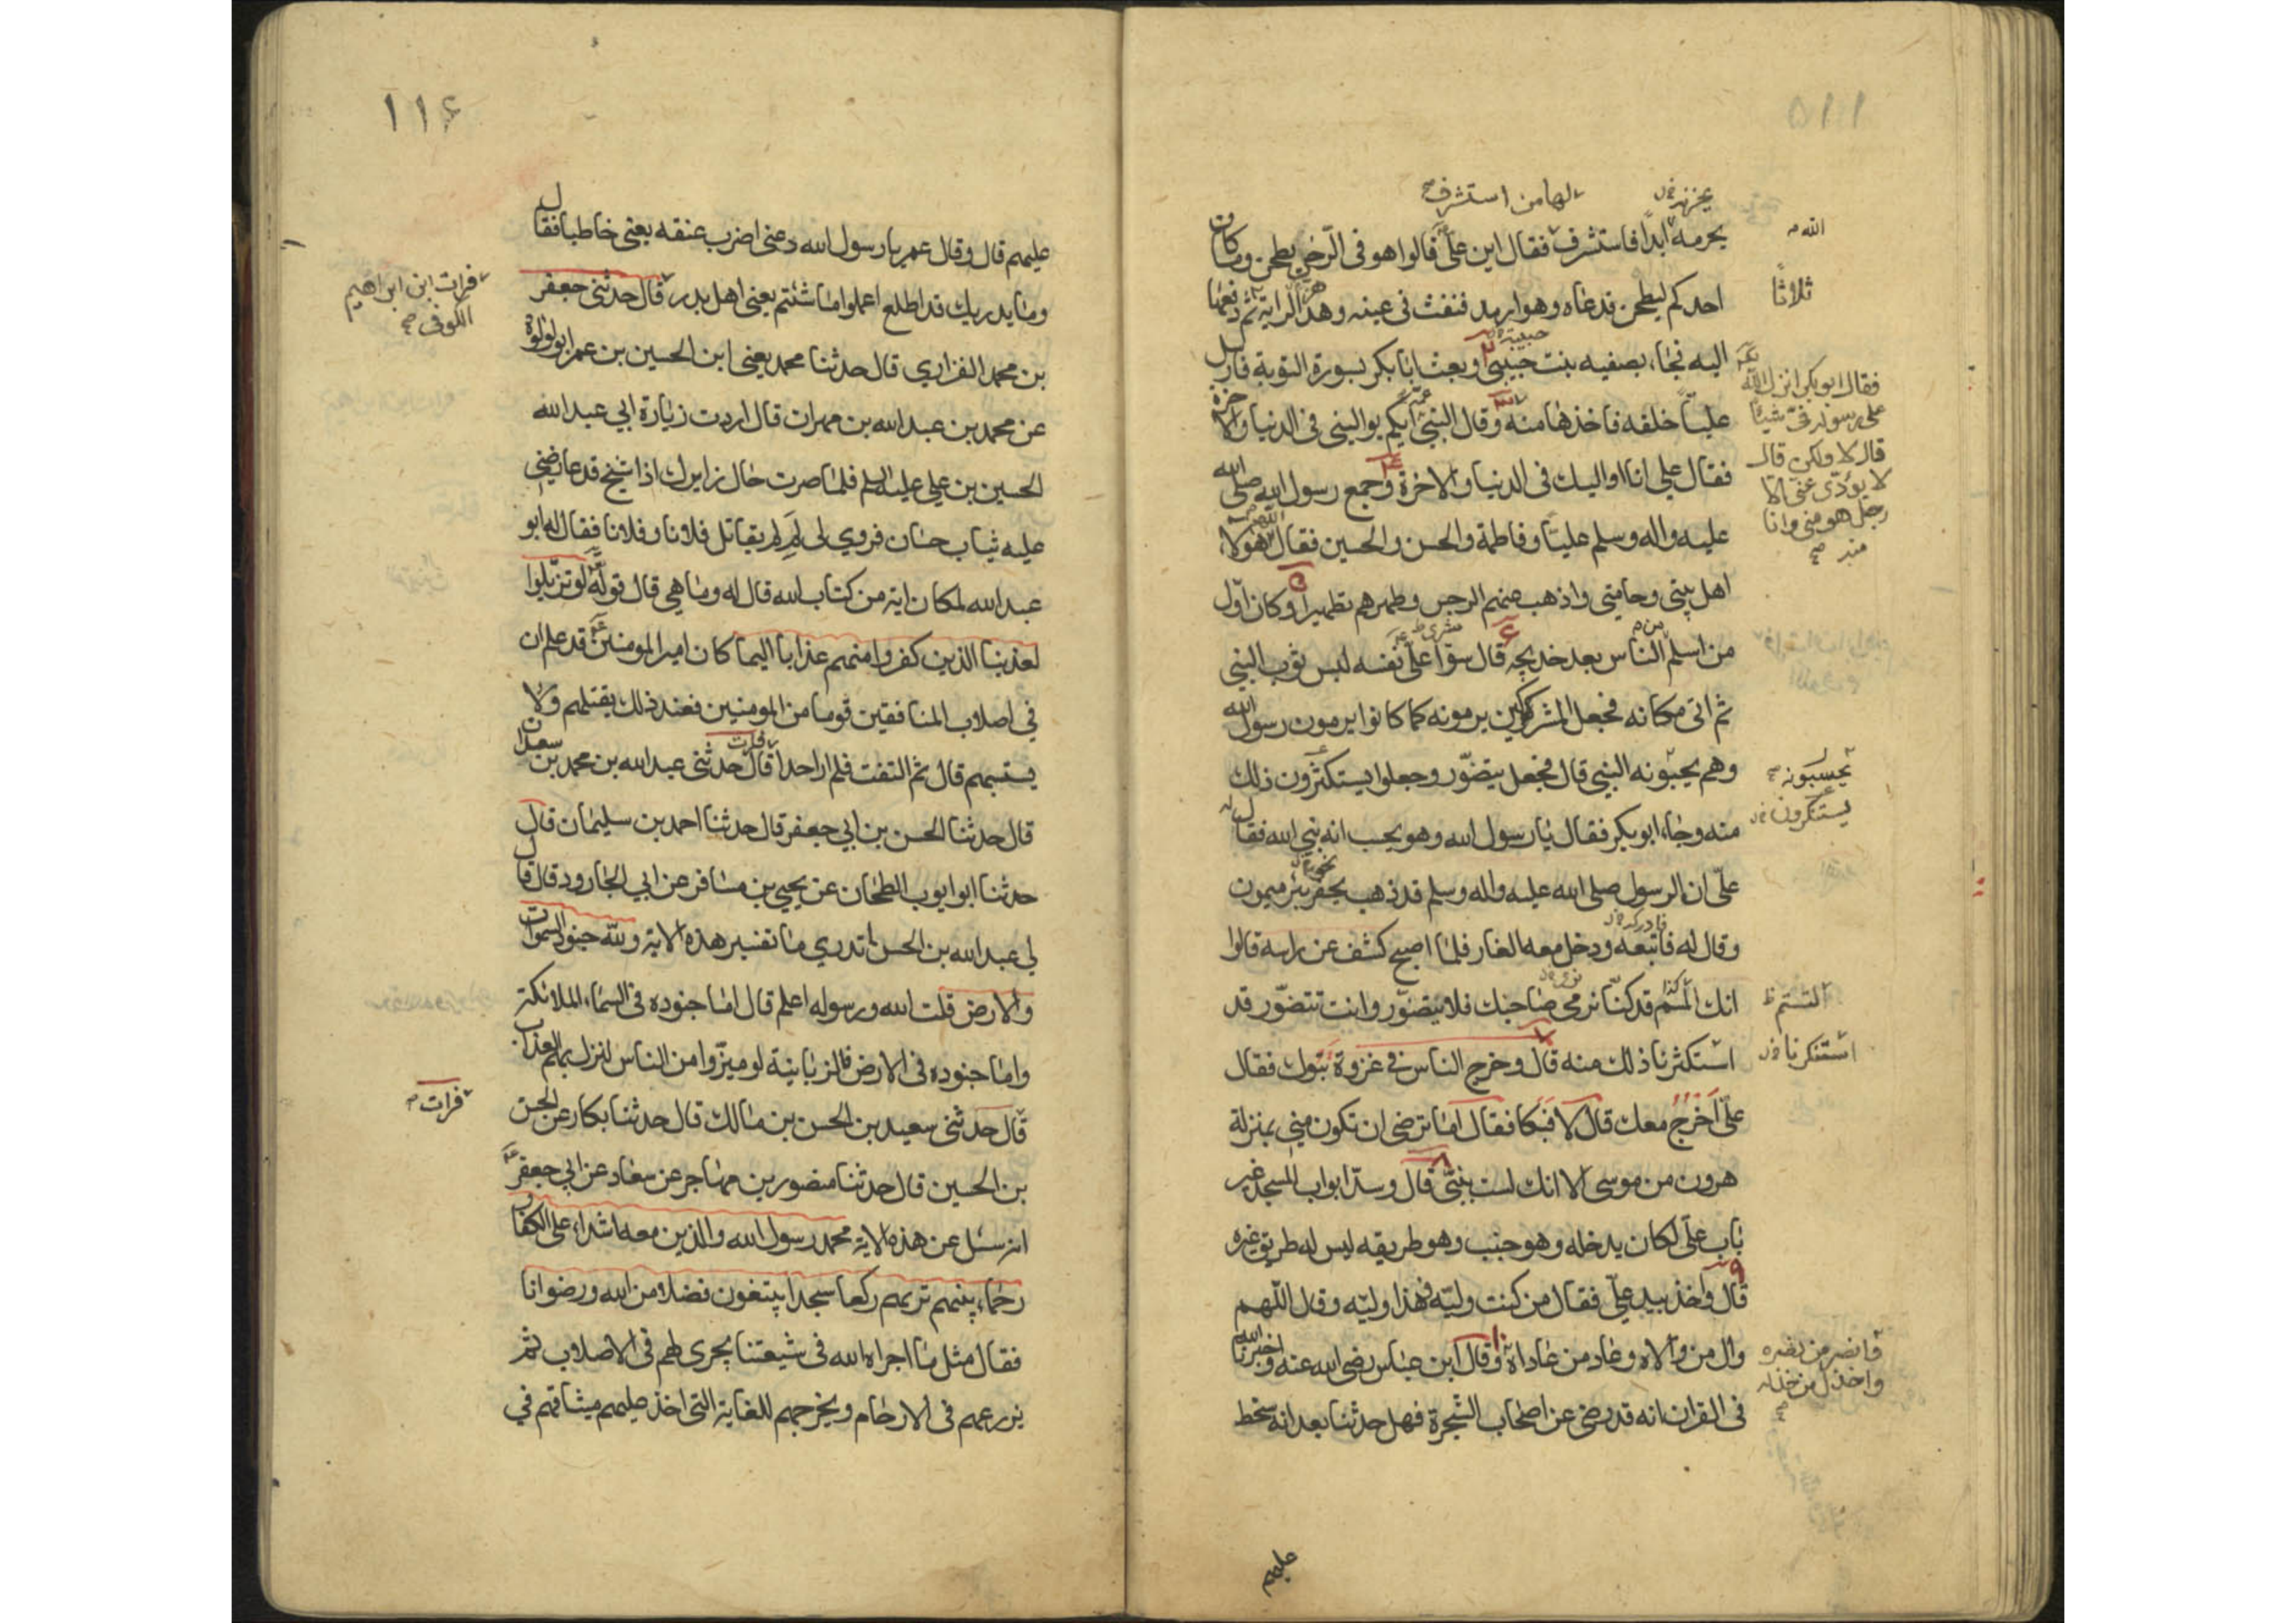 يخزيه خ ل
لها من استشرف صح
الله م
يحرمه ابدا فاستشرف فقال اين علي قالوا هو في الرحى يطحن وما كان
ثلاثا
احدكم ليطحن فدعاه وهو ارمد فنفث في عينه وهز الراية ثم دفعها
حبيبة
اليه فجاء بصفيه بنت حيي وبعث ابا بكر بسورة التوبة فارسل
فقال ابو بكر انزل الله
على رسوله في شيئا
قال لا ولكن قال
لا يؤدي عني الا
رجل هو مني وانا
منه صح
عليا خلفه فاخذها منه وقال النبي ايكم يواليني في الدنيا والاخرة
فقال علي انا اواليك في الدنيا والاخرة وجمع رسول الله صلى الله
عليه واله وسلم عليا وفاطمة والحسن والحسين فقال اللهم هولاء
اهل بيتي وحامتي واذهب عنهم الرجس وطهرهم تطهيرا وكان اول
من اسلم من الناس بعد خديجه قال سوا علي نفسه لبس ثوب النبي
ثم اتى مكانه فجعل المشركين يرمونه كما كانوا يرمون رسول الله
وهم يحبونه النبي قال فجعل يتضور وجعلوا يستكثرون ذلك
يحسبونه صح
يستنكرون خ ل
منه وجاء ابو بكر فقال يا رسول الله وهو يحسب انه نبي الله فقال له
علي ان الرسول صلى الله عليه واله وسلم قد ذهب يحفر بئر ميمون
نحو
فادركه خ ل
وقال له فاتبعه ودخل معه الغار فلما اصبح كشف عن راسه قالوا
انك قد كنا نرمي صاحبك فلا يتضور وانت تتضور قد
استكثرنا ذلك منه قال وخرج الناس في غزوة تبوك فقال
استنكرنا خ ل
علي اخرج معك قال لا فبكا فقال اما ترضى ان تكون مني بمنزلة
هرون من موسى الا انك لست بنبي قال وسد ابواب المسجد غير
باب علي لكان يدخله وهو جنب وهو طريقه ليس له طريق غيره
قال واخذ بيد علي فقال من كنت وليه فهذا وليه وقال اللهم
وال من والاه وعاد من عاداه وقال ابن عباس رضي الله عنه واخبرنا الله
وانصر من نصره
واخذل من خذله
صح
في القران انه قد رضي عن اصحاب الشجرة فهل حدثنا بعد انه سخط
عليهم
١١٦
عليهم قال وقال عمر يا رسول الله دعني اضرب عنقه يعني خاطبا فقال
وما يدريك قد اطلع اعملوا ما شئتم يعني اهل بدر قال حدثني جعفر
فرات ابن ابراهيم
الكوفي صح
بن محمد الفزاري قال حدثنا محمد يعني ابن الحسين بن عمر ابو لولوة
عن محمد بن عبد الله بن مهران قال اردت زيارة ابي عبد الله
الحسين بن علي عليه السلم فلما صرت حال زايرك اذا شيخ قد عارضني
عليه ثياب حسان فروي لي لم لم يقاتل فلانا وفلانا فقال له ابو
عبد الله لمكان اية من كتاب الله قال له وما هي قال قوله لو تزيلوا
لعذبنا الذين كفروا منهم عذابا اليما كان امير المومنين قد علم ان
في اصلاب المنافقين قوما من المومنين فعند ذلك يقتلهم ولا
يستبهم قال ثم التفت فلم ار احدا قال حدثني عبد الله بن محمد بن سعدان
فرات
قال حدثنا الحسن بن ابي جعفر قال حدثنا احمد بن سليمان قال
حدثنا ابو ايوب الطحان عن يحيى بن مسافر عن ابي الجارود قال قال
لي عبد الله بن الحسن اتدري ما تفسير هذه الاية ولله جنود السموات
والارض قلت الله ورسوله اعلم قال اما جنوده في السماء الملائكة
واما جنوده في الارض فالزبانية لو ميزوا من الناس لنزل بهم العذاب
فرات م
قال حدثني سعيد بن الحسن بن مالك قال حدثنا بكار عن الحسن
بن الحسين قال حدثنا منصور بن مهاجر عن سعاد عن ابي جعفر
انه سئل عن هذه الاية محمد رسول الله والذين معه اشداء على الكفار
رحماء بينهم تريهم ركعا سجدا يبتغون فضلا من الله ورضوانا
فقال مثل ما اجراه الله في شيعتنا يجري لهم في الاصلاب ثم
يزرعهم في الارحام ويخرجهم للغاية التي اخذ عليهم ميثاقهم في